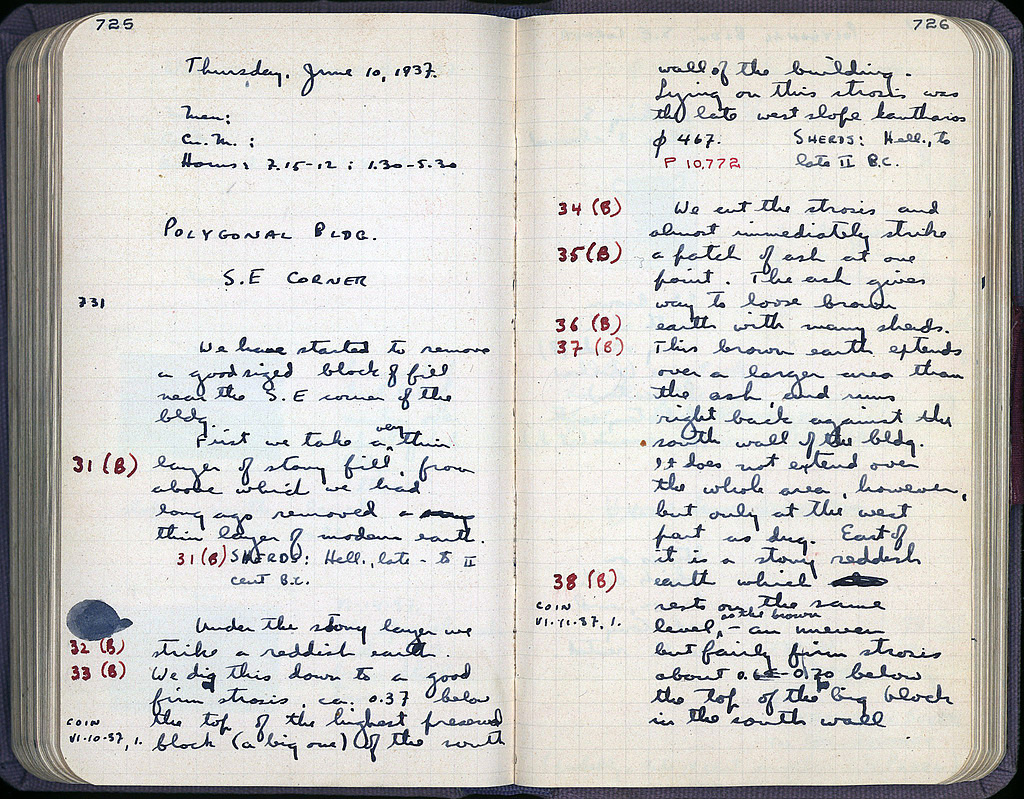 725
Thursday, June 10, 1937.
Men:
Cu. M. :
Hours: 7.15-12 ; 1.30-5.30
POLYGONAL BLDG.
S.E CORNER
331
We have started to remove
a good sized block of fill
near the S.E corner of the
bldg.
First we take a very thin
31 (B) layer of stony fill, from
above which we had
long ago removed a
thin layer of modern earth.
31 (B) SHERDS: Hell., late - to II
cent B.C.
Under the stony layer we
32 (B) strike a reddish earth.
33 (B) We dig this down to a good
firm strosis, ca. 0.37 below
COIN the top of the highest preserved
VI-10-37, 1. block (a big one) of the south
726
wall of the building.
Lying on this strosis was
the late west slope kantharos
φ 467. SHERDS: Hell., to
P 10,772 late II B.C.
34 (B) We cut the strosis and
almost immediately strike
35 (B) a patch of ash at one
point. The ash gives
way to loose brown
36 (B) earth with many sherds.
37 (B) This brown earth extends
over a larger area than
the ash, and runs
right back against the
south wall of the bldg.
It does not extend over
the whole area, however,
but only at the west
part as dug. East of
it is a stony reddish
38 (B) earth which
COIN rests on the same
VI-11-37, 1. level, as the brown - an uneven
but fairly firm strosis
about 0.65-0.70 below
the top of the big block
in the south wall